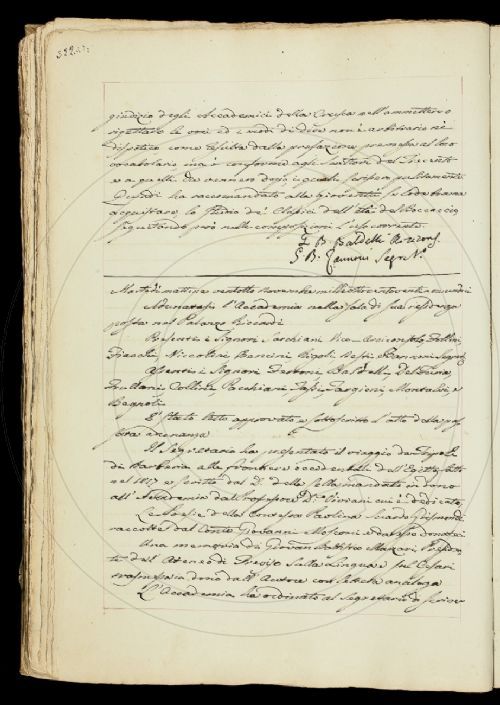 giudizio degli Accademici della Crusca nell'ammettere o
rigettare le voci ed i modi di dire non è arbitrario nè
dispotico come risulta dalla prefazione premessa al loro
vocabolario, ma è conforme agli Autori del Trecento
e a quelli che vennero dopo i quali scrissero pulitamente.
Quindi ha raccomandato alla Gioventù
acquistare lo Stile de' Classici dell'età del Boccaccio
seguitando però nelle composizioni l'uso corrente.
G. B. Baldelli
G. B. Zannoni Segr.
Martedì mattina ventotto Novembre mille ottocento
Adunatasi l'Accademia nella sala di sua residenza
posta nel Palazzo Riccardi
Presenti i Signori Sarchiani Vice-Arciconsolo, Follini,
Fiacchi, Niccolini, Bencini, Rigoli, Nesti, Zannoni Segret.
Assenti i Signori Ferroni, Baldelli, Del Furia,
Collini, Pacchiani, Targioni, Montalvi, e
Bagnoli
È stato letto approvato e sottoscritto l'atto della pas-
sata adunanza
Il Segretario ha presentato il viaggio da Tripoli
di Barberia alle frontiere occidentali dell'Egitto fatto
nel 1817 e scritto dal D. della Cella mandato in dono
all'Accademia dal Professore D. Viviani cui è dedicato
Le Poesie della Contessa Paolina Grismondi
raccolte dal Conte Giovanni Mosconi
Una memoria di Giovan Battista Marzari Presiden-
te dell'Ateneo di Treviso sulla Lingua e sul Cesari
trasmessa in dono dall'Autore con lettera analoga
L'Accademia ha ordinato al Segretario di scrivere